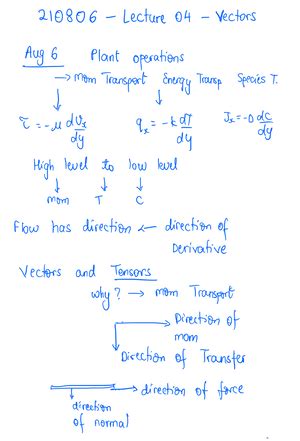 210806 - Lecture 04 - Vectors
Aug 6 Plant operations
→ mom Transport Energy Transp Species T.
τ = -μ dVx/dy qx = -k dT/dy Jx = -D dC/dy
High level to low level
mom T C
Flow has direction ← direction of
Derivative
Vectors and Tensors
why? → mom Transport
→ Direction of
mom
Direction of Transfer
→ direction of force
direction
of normal